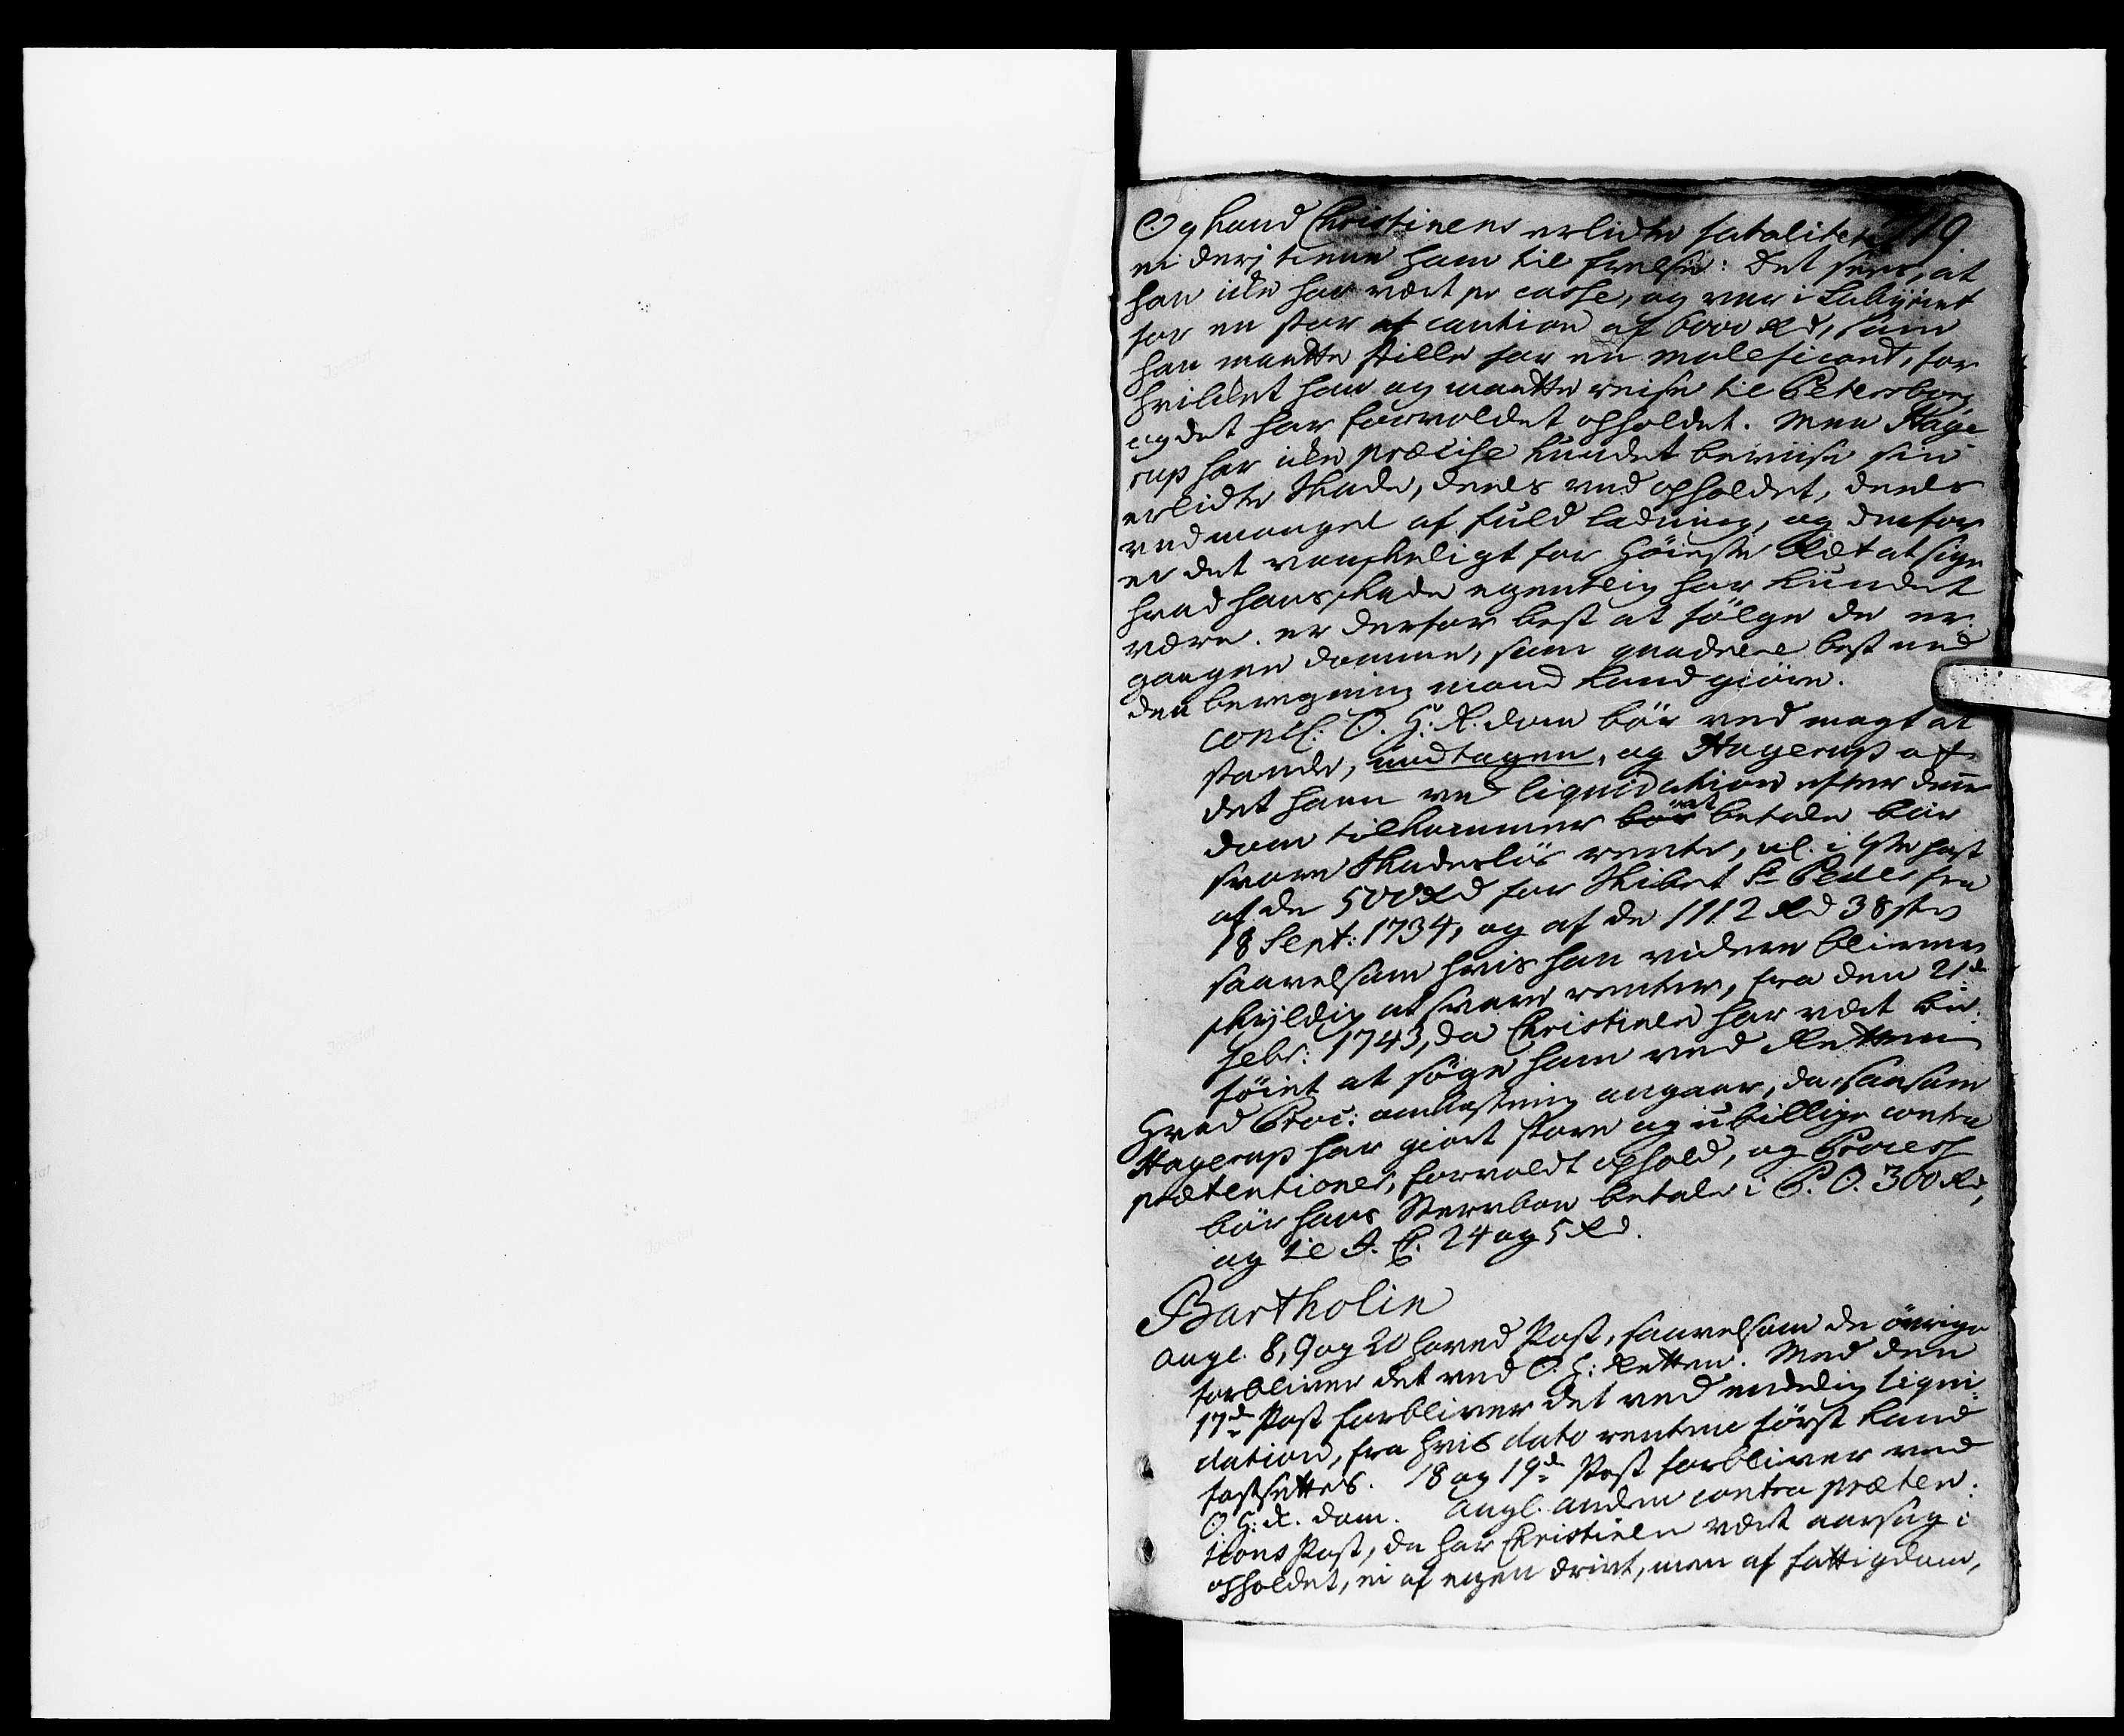 Og kand Christinens erlidte fataliteter 119
ei derj tiene ham til frelse: Det sees, at
han icke har vært pr casse, og var i Labyrint
for en stor af caution af 6000 Rd, som
han maatte stille for en maleficant, for
hvilcket han og maatte reise til Petersborg
og det har forvoldet opholdet. Men Hage
rup har icke præcise kundet beviise sin
erlidte Skade, deels ved opholdet, deels
ved mangel af fuld ladning, og derfor
er det vanskeligt for Høieste Ret at sige
hvad hans skade egentlig har kundet
være. er derfor best at følge de er
gangne domme, som quadrere best med
den beregning mand kand giøre.
Concl: O. H: R. dom bør ved magt at
stande, undtagen, og Hagerup af
det ham ved liquidation efter denne
dom tilkommer bør at betale bør
svare Skadesløs rente, nl. i 4de post
af de 500 Rd for Skibet St Peder fra
18 Sept: 1734, og af de 1112 Rd 38 st
saavelsom hvis han videre bliver
skyldig at svare renter, fra den 21de
Febr: 1743, da Christinen har vært be
føiet at søge ham ved Retten
Hvad Proc: omkostning angaaer, da saasom
Hagerup har giort store og ubillige contra
prætentioner, forvoldt ophold, og Process
bør hans Sterboe betale i P. O. 300 Rd,
og til J. C. 24 og 5 Rd.
Bartholin
angl. 8, 9 og 20 hoved Post, saavelsom de øvrige
forbliver det ved O. H: Retten. Med den
17de Post forbliver det ved endelig liqui
dation, fra hvis dato renten først kand
fastsettes. 18 og 19de Post forbliver ved
O. H: R. dom. angl. anden contra præten:
tions Post, da har Christinen vært aarsag i
opholdet, ei af egen drivt, men af fattigdom,